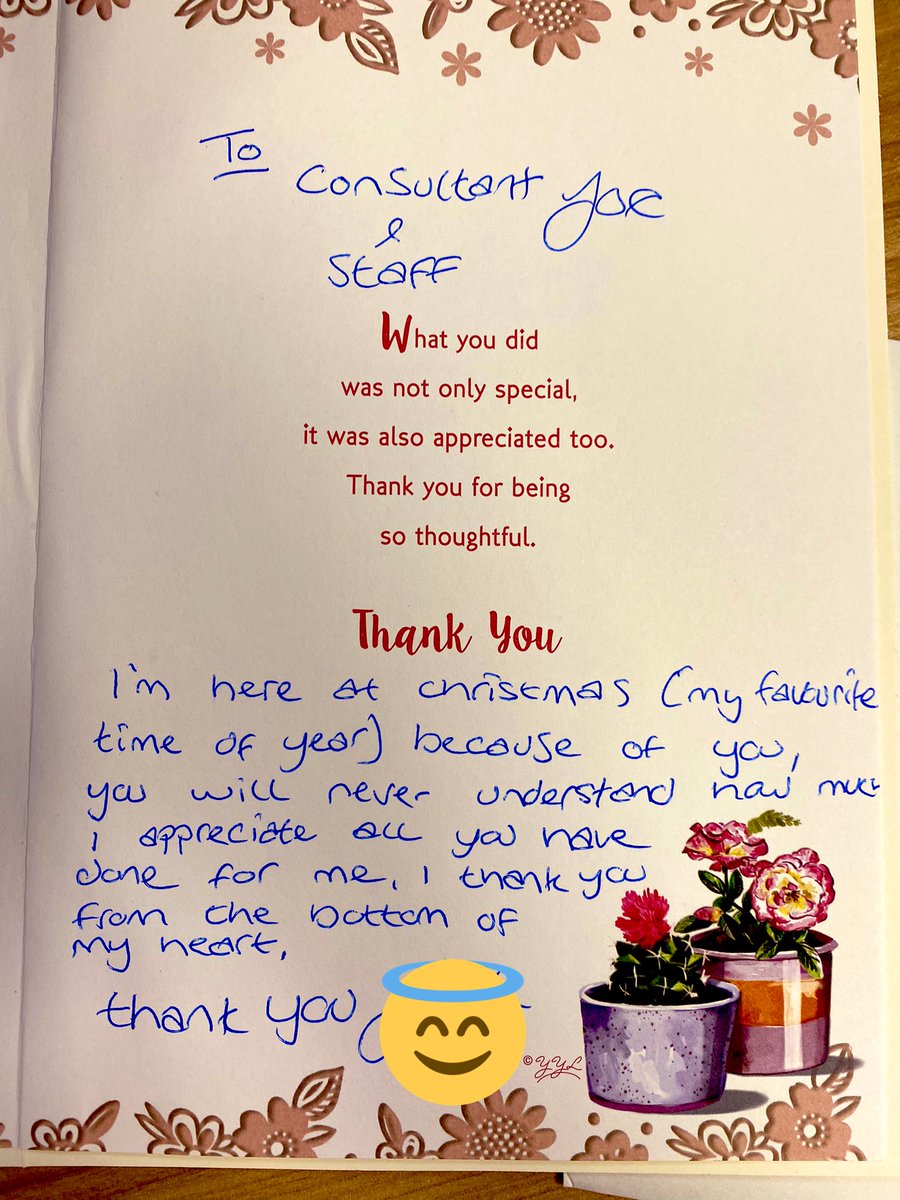 To
Consultant Joe
&
Staff
What you did
was not only special,
it was also appreciated too.
Thank you for being
so thoughtful.
Thank You
I'm here at christmas (my favourite
time of year) because of you,
you will never understand how much
I appreciate all you have
done for me. I thank you
from the bottom of
my heart.
thank you
©YYL